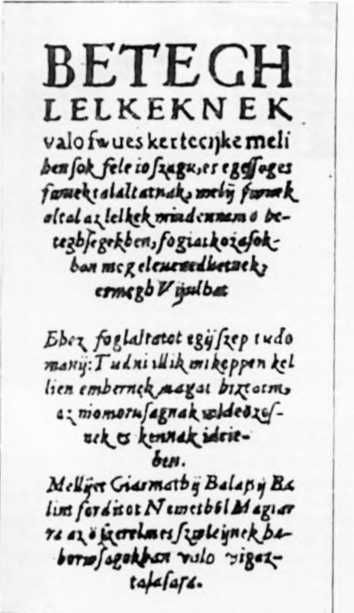 BETEGH
LELKEKNEK
valo fwues kertecijke meli
ben sok fele io szagu, es egesseges
fwuek talaltatnak, melij fwuek
altal az lelkek mindennemo be-
teghsegekben, fogiatkozasok-
ban megeleuenedhetnek,
esmegh Vijulhat
Ebez foglaltatot egij szep tudo
manij: Tudni illik mikeppen kel
lien embernek magat biztatni,
az niomorusagnak wldeozes-
nek es kennak ideie-
ben.
Mellijet Giarmathij Balassij Ba
lint forditot Nemetből Magiar
ra az ő szerelmes szwleijnek ha-
borwsagokban valo vigaz-
talasara.